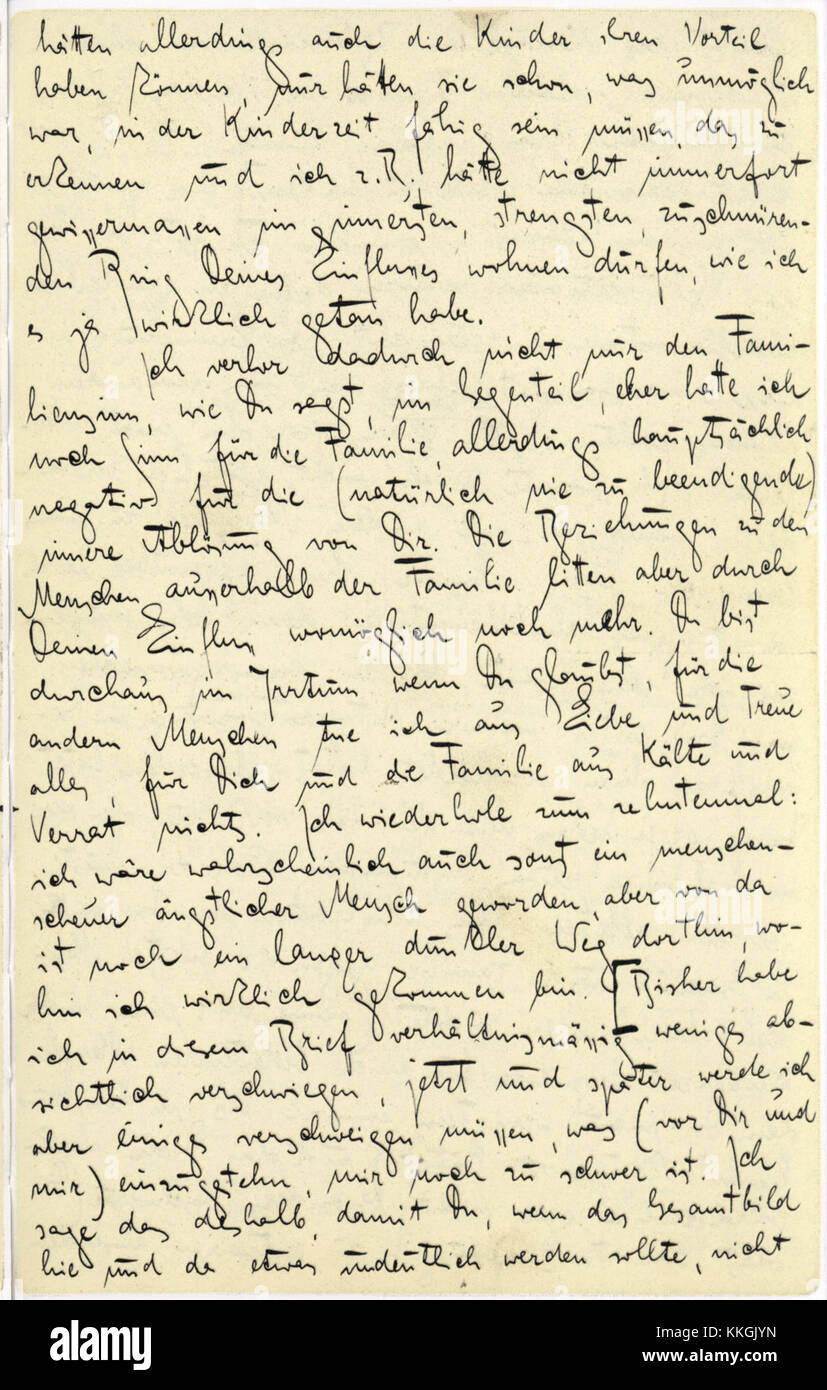 hätten allerdings auch die Kinder ihren Vorteil
haben können, nur hätten sie schon, was unmöglich
war, in der Kinderzeit fähig sein müssen, das zu
erkennen und ich z.B. hätte nicht immerfort
gewissermassen im innersten, strengsten, zuschnüren-
den Ring Deines Einflusses wohnen dürfen, wie ich
es ja wirklich getan habe.
Ich verlor dadurch nicht nur den Fami-
liensinn, wie Du sagst, im Gegenteil, eher hatte ich
noch Sinn für die Familie, allerdings hauptsächlich
negativ für die (natürlich nie zu beendigende)
innere Ablösung von Dir. Die Beziehungen zu den
Menschen ausserhalb der Familie litten aber durch
Deinen Einfluss womöglich noch mehr. Du bist
durchaus im Irrtum wenn Du glaubst, für die
andern Menschen tue ich aus Liebe und Treue
alles, für Dich und die Familie aus Kälte und
Verrat nichts. Ich wiederhole zum zehntenmal:
ich wäre wahrscheinlich auch sonst ein menschen-
scheuer ängstlicher Mensch geworden, aber von da
ist noch ein langer dunkler Weg dorthin, wo-
hin ich wirklich gekommen bin. [Bisher habe
ich in diesem Brief verhältnismässig weniges ab-
sichtlich verschwiegen, jetzt und später werde ich
aber einiges verschweigen müssen, was (vor Dir und
mir) einzugestehn, mir noch zu schwer ist. Ich
sage das deshalb, damit Du, wenn das Gesamtbild
hie und da etwas undeutlich werden sollte, nicht
alamy
Image ID: KKGJYN
www.alamy.com